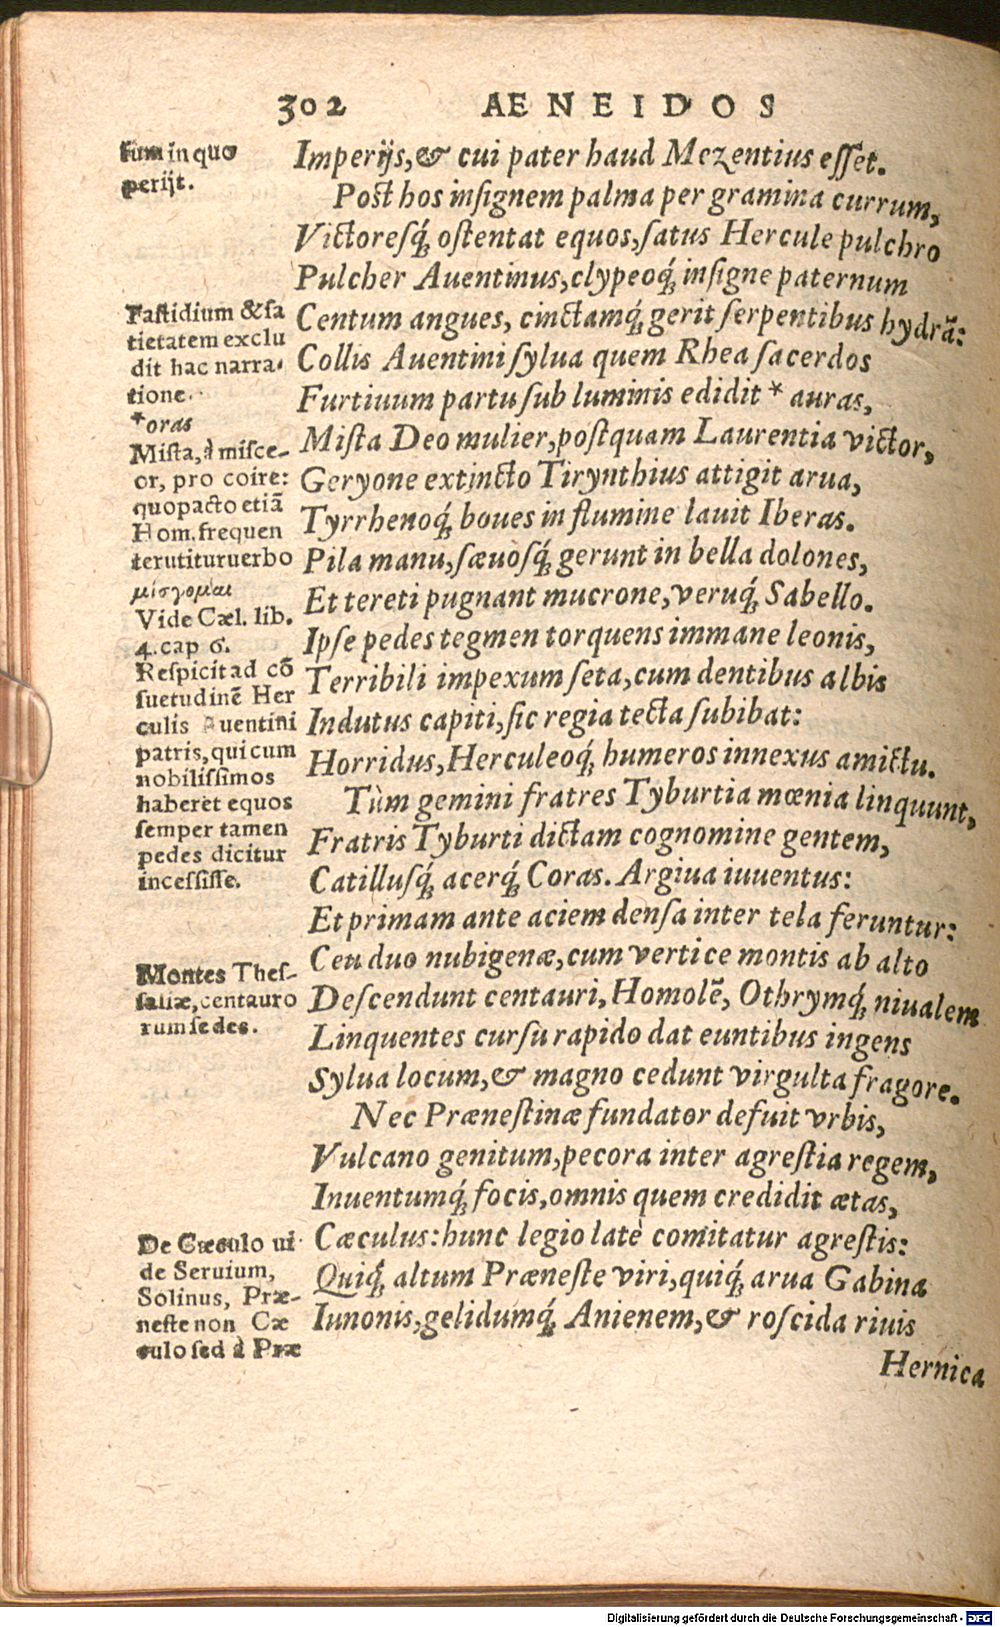 302 AENEIDOS
sum in quo
perijt.
Imperijs, & cui pater haud Mezentius esset.
Post hos insignem palma per gramina currum,
Victoresq́; ostentat equos, satus Hercule pulchro
Pulcher Auentinus, clypeoq́; insigne paternum
Centum angues, cinctamq́; gerit serpentibus hydrā:
Collis Auentini sylua quem Rhea sacerdos
Furtiuum partu sub luminis edidit * auras,
Mista Deo mulier, postquam Laurentia victor,
Geryone extincto Tirynthius attigit arua,
Tyrrhenoq́; boues in flumine lauit Iberas.
Pila manu, sæuosq́; gerunt in bella dolones,
Et tereti pugnant mucrone, veruq́; Sabello.
Ipse pedes tegmen torquens immane leonis,
Terribili impexum seta, cum dentibus albis
Indutus capiti, sic regia tecta subibat:
Horridus, Herculeoq́; humeros innexus amictu.
Tùm gemini fratres Tyburtia mœnia linquunt,
Fratris Tyburti dictam cognomine gentem,
Catillusq́; acerq́; Coras. Argiua iuuentus:
Et primam ante aciem densa inter tela feruntur:
Ceu duo nubigenæ, cum vertice montis ab alto
Descendunt centauri, Homolē, Othrymq́; niualem
Linquentes cursu rapido dat euntibus ingens
Sylua locum, & magno cedunt virgulta fragore.
Nec Prænestinæ fundator defuit vrbis,
Vulcano genitum, pecora inter agrestia regem,
Inuentumq́; focis, omnis quem credidit ætas,
Cæculus: hunc legio latè comitatur agrestis:
Quiq́; altum Præneste viri, quiq́; arua Gabinæ
Iunonis, gelidumq́; Anienem, & roscida riuis
Hernica
Fastidium & sa
tietatem exclu
dit hac narra-
tione.
*oras
Mista, à misce-
or, pro coire:
quopacto etiā
Hom. frequen
ter utitur uerbo
μίσγομαι
Vide Cæl. lib.
4. cap 6.
Respicit ad cō
suetudinē Her
culis Auentini
patris, qui cum
nobilissimos
haberet equos
semper tamen
pedes dicitur
incessisse.
Montes Thes-
saliæ, centauro
rum sedes.
De Cæculo ui-
de Seruium,
Solinus, Præ-
neste non Cæ
culo sed à Præ
Digitalisierung gefördert durch die Deutsche Forschungsgemeinschaft - DFG